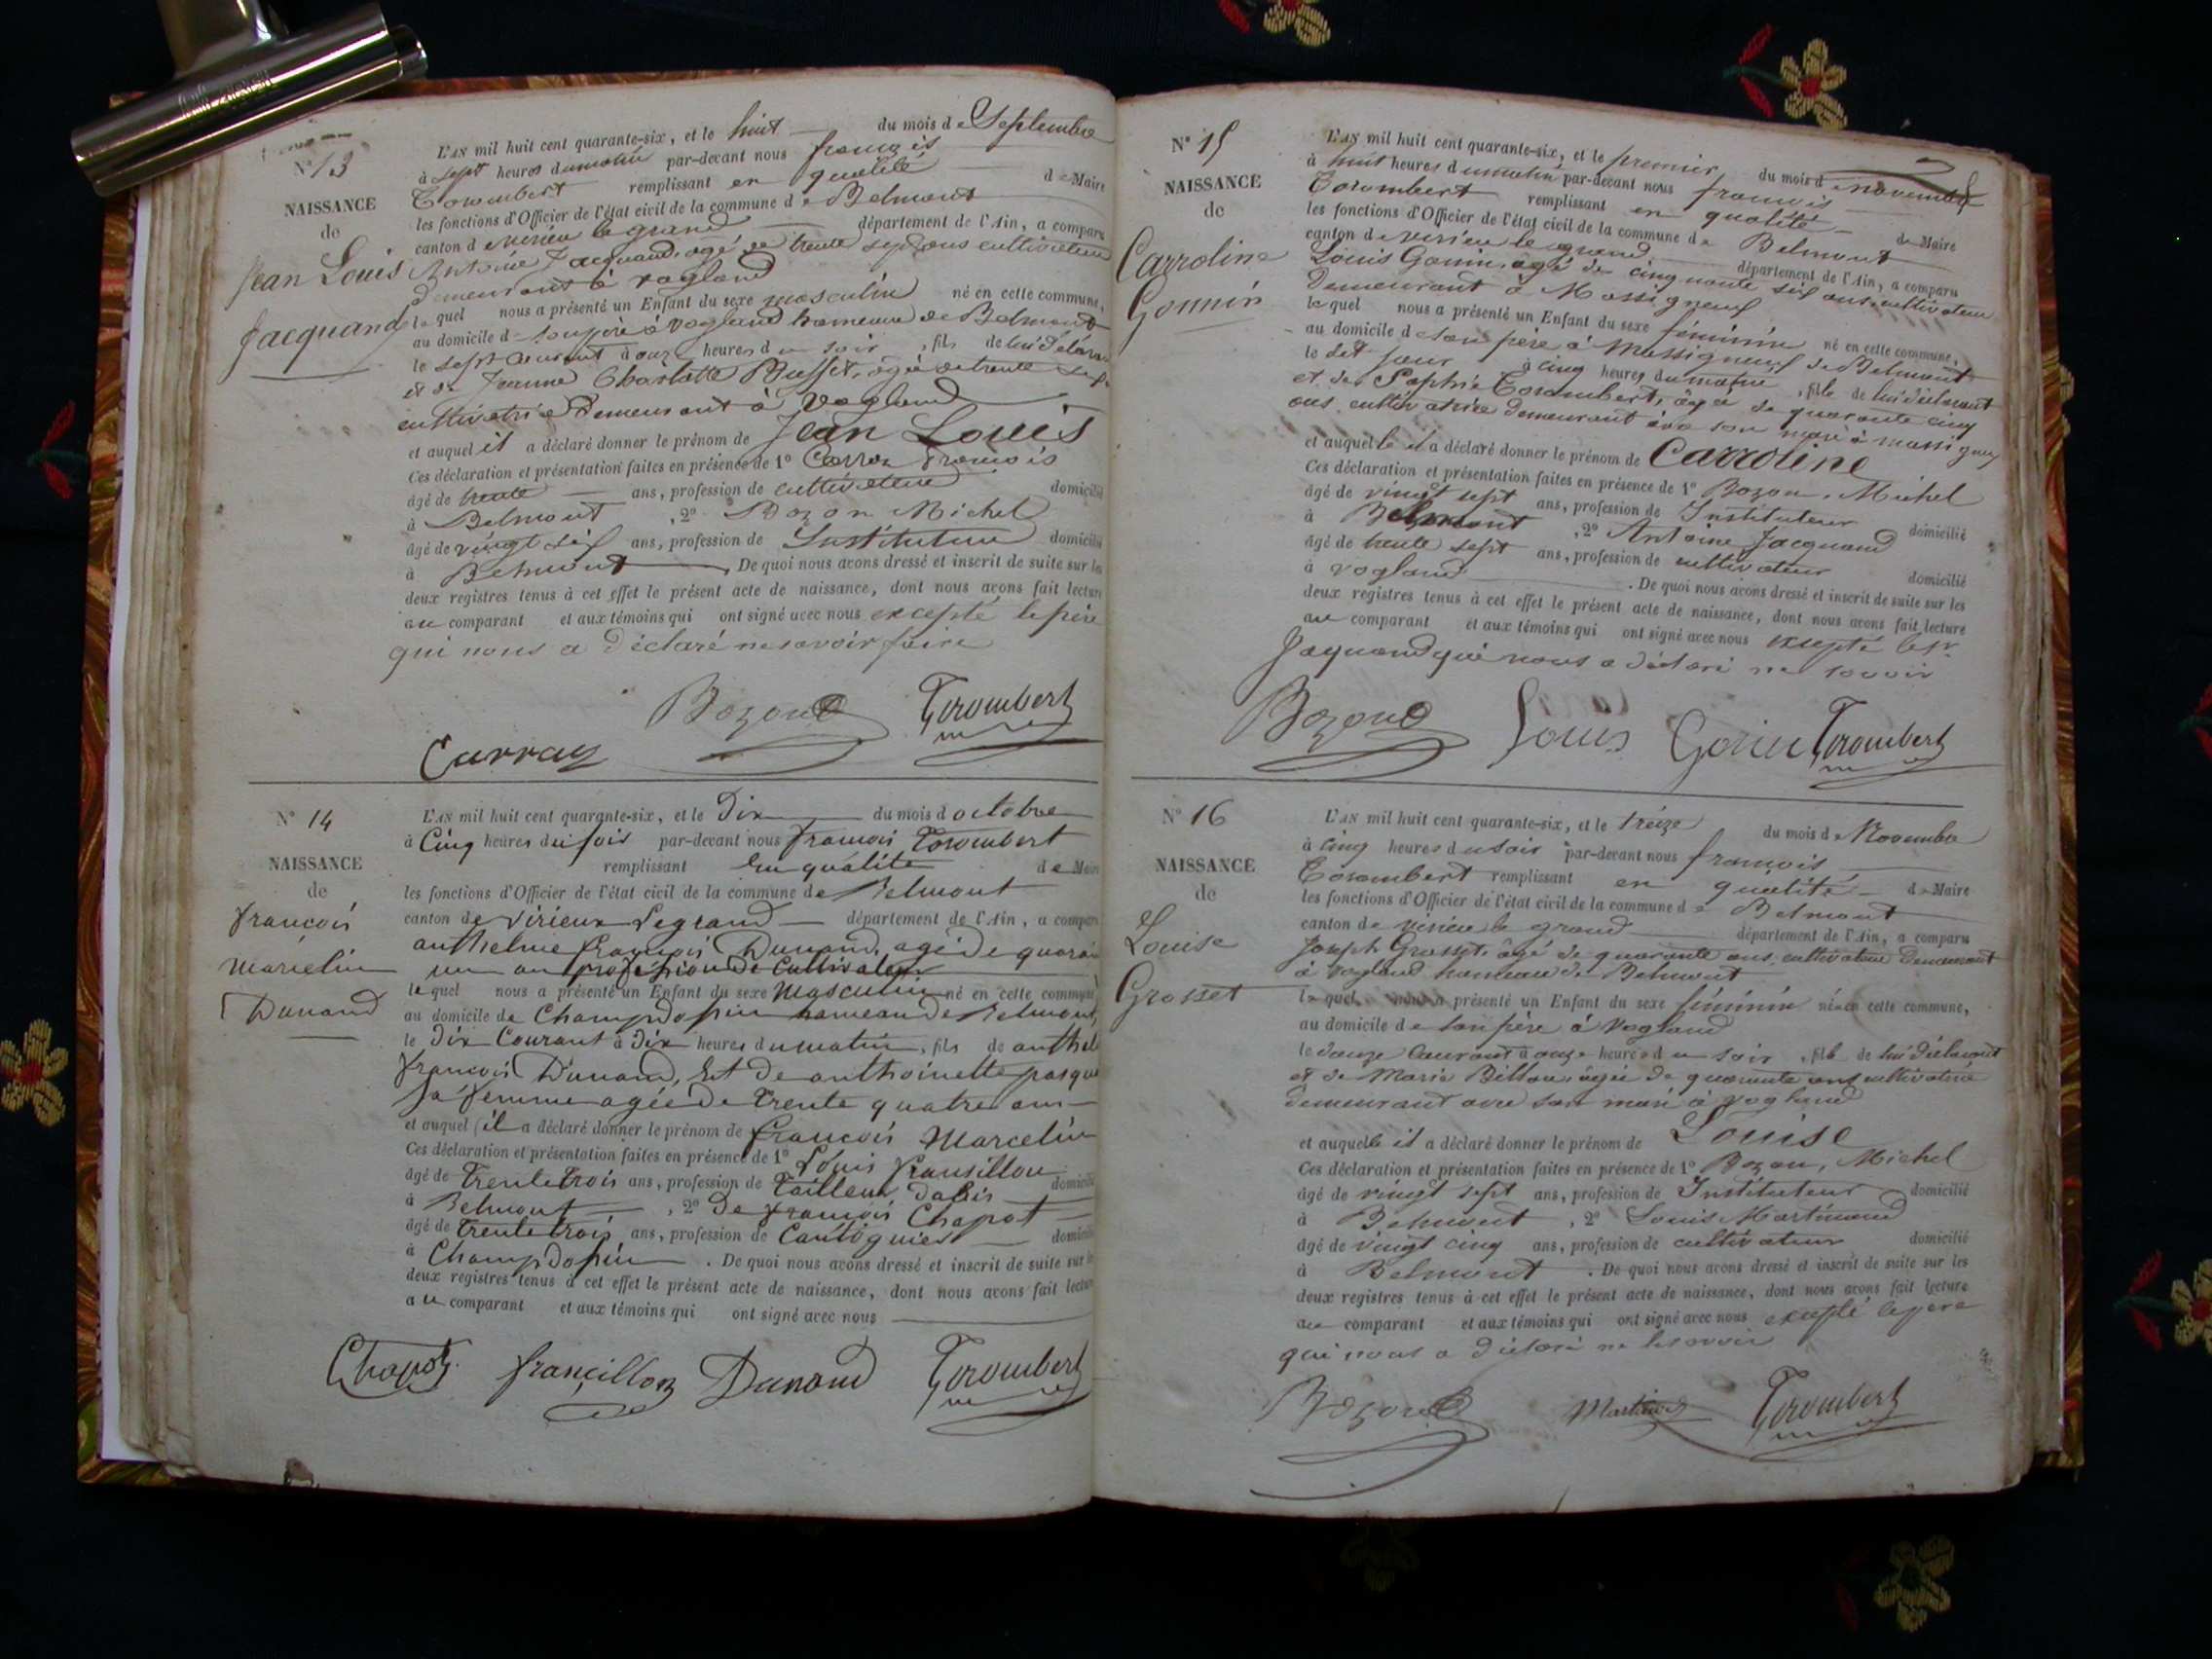 N° 13
NAISSANCE
de
Jean Louis
Jacquand
L'AN mil huit cent quarante-six, et le huit du mois de Septembre
à sept heures du matin par-devant nous françois
Corombert remplissant en qualité de Maire
les fonctions d'Officier de l'état civil de la commune de Belmont
canton de virieu le grand département de l'Ain, a comparu
Antoine Jacquand, agé de trente sept ans cultivateur
demeurant à vogland
lequel nous a présenté un Enfant du sexe masculin né en cette commune,
au domicile de son père à vogland hameau de Belmont
le sept courant à onze heures du soir, fils de lui déclarant
et de Jeanne Charlotte Buffet, âgée de trente sept
cultivatrice demeurant à vogland
et auquel il a déclaré donner le prénom de Jean Louis
Ces déclaration et présentation faites en présence de 1° Carron françois
âgé de trente ans, profession de cultivateur domicilié
à Belmont, 2° Bozon Michel
âgé de vingt six ans, profession de Instituteur domicilié
à Belmont. De quoi nous avons dressé et inscrit de suite sur les
deux registres tenus à cet effet le présent acte de naissance, dont nous avons fait lecture
au comparant et aux témoins qui ont signé avec nous excepté le père
qui nous a déclaré ne savoir faire
Bozon Corombert
Carron
N° 14
NAISSANCE
de
francois
marcelin
Dunand
L'AN mil huit cent quarante-six, et le Dix du mois d octobre
à Cinq heures du soir par-devant nous francois Corombert
remplissant En qualité de Maire
les fonctions d'Officier de l'état civil de la commune de Belmont
canton de Virieux Legrand département de l'Ain, a comparu
anthelme francois Dunand, agé de quarante
un an profession de Cultivateur
lequel nous a présenté un Enfant du sexe Masculin né en cette commune,
au domicile de Champdossin hameau de Belmont,
le Dix Courant à Dix heures du matin, fils de anthel
francois Dunand, Et de anthoinette pasque
sa femme agée de trente quatre ans
et auquel il a déclaré donner le prénom de francois Marcelin
Ces déclaration et présentation faites en présence de 1° Louis fransillon
âgé de trente trois ans, profession de tailleur dabis domicilié
à Belmont, 2° De francois Chapot
âgé de trente trois ans, profession de Cantognier domicilié
à Champdossin. De quoi nous avons dressé et inscrit de suite sur les
deux registres tenus à cet effet le présent acte de naissance, dont nous avons fait lecture
au comparant et aux témoins qui ont signé avec nous
Chapot francillon Dunand Corombert
N° 15
NAISSANCE
de
Carroline
Gonnin
L'AN mil huit cent quarante-six, et le premier du mois d novembre
à huit heures du matin par-devant nous françois
Corombert remplissant en qualité de Maire
les fonctions d'Officier de l'état civil de la commune de Belmont
canton de virieu le grand département de l'Ain, a comparu
Louis Gonnin, âgé de cinquante six ans, cultivateur
demeurant à Massigneux
lequel nous a présenté un Enfant du sexe féminin né en cette commune,
au domicile de son père à Massigneux de Belmont
le dit jour à cinq heures du matin, fille de lui déclarant
et de Sophie Corombert, âgée de quarante cinq
ans cultivatrice demeurant avec son mari à massigneux
et auquelle il a déclaré donner le prénom de Carroline
Ces déclaration et présentation faites en présence de 1° Bozon, Michel
âgé de vingt sept ans, profession de Instituteur domicilié
à Belmont, 2° Antoine Jacquand
âgé de trente sept ans, profession de cultivateur domicilié
à vogland. De quoi nous avons dressé et inscrit de suite sur les
deux registres tenus à cet effet le présent acte de naissance, dont nous avons fait lecture
au comparant et aux témoins qui ont signé avec nous excepté le sr
Jaquand qui nous a déclaré ne savoir
Bozon Louis Gonin Corombert
N° 16
NAISSANCE
de
Louise
Grosset
L'AN mil huit cent quarante-six, et le treize du mois de Novembre
à cinq heures du soir par-devant nous françois
Corombert remplissant en qualité de Maire
les fonctions d'Officier de l'état civil de la commune de Belmont
canton de virieu le grand département de l'Ain, a comparu
Joseph Grosset, âgé de quarante ans, cultivateur demeurant
à vogland hameau de Belmont
lequel nous a présenté un Enfant du sexe féminin né en cette commune,
au domicile de son père à vogland
le douze courant à onze heures du soir, fille de lui déclarant
et de Marie Billon, âgée de quarante ans cultivatrice
demeurant avec son mari à vogland
et auquelle il a déclaré donner le prénom de Louise
Ces déclaration et présentation faites en présence de 1° Bozon, Michel
âgé de vingt sept ans, profession de Instituteur domicilié
à Belmont, 2° Louis Martinand
âgé de vingt cinq ans, profession de cultivateur domicilié
à Belmont. De quoi nous avons dressé et inscrit de suite sur les
deux registres tenus à cet effet le présent acte de naissance, dont nous avons fait lecture
au comparant et aux témoins qui ont signé avec nous excepté le père
qui nous a déclaré ne le savoir
Bozon Martinand Corombert